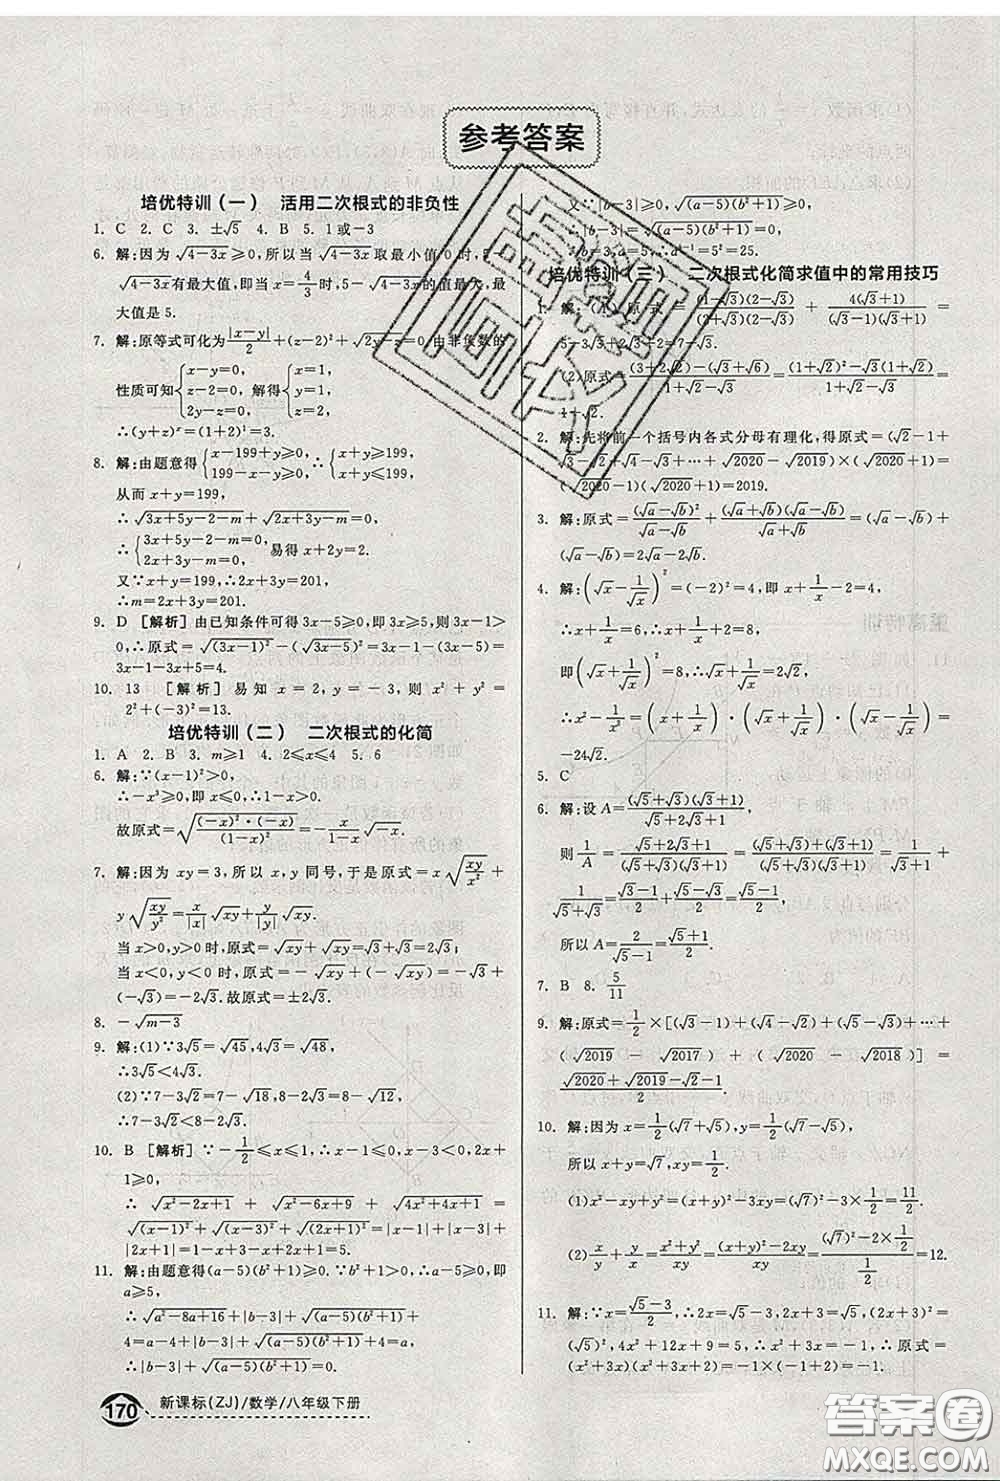 参考答案
培优特训(一) 活用二次根式的非负性
1. C 2. C 3. ±√5 4. B 5. 1或-3
6. 解:因为√(4-3x)≥0,所以当√(4-3x)取最小值0时,5-
√(4-3x)有最大值,即当x=4/3时,5-√(4-3x)的值最大,最
大值是5.
7. 解:原等式可化为|x-y|/2+(z-2)²+√(2y-z)=0,由非负数的
性质可知{x-y=0, z-2=0, 2y-z=0, 解得{x=1, y=1, z=2.
∴(y+z)ˣ=(1+2)¹=3.
8. 解:由题意得{x-199+y≥0, 199-x-y≥0, ∴{x+y≥199, x+y≤199,
从而x+y=199,
∴√(3x+5y-2-m)+√(2x+3y-m)=0,
∴{3x+5y-2-m=0, 2x+3y-m=0, 易得x+2y=2.
又∵x+y=199,∴2x+3y=201,
∴m=2x+3y=201.
9. D [解析] 由已知条件可得3x-5≥0,即3x≥5,则3x-1>
0,∴原式=√(3x-1)²-√(3x-5)²=(3x-1)-(3x-5)=
3x-1-3x+5=4.
10. 13 [解析] 易知x=2,y=-3,则x²+y²=
2²+(-3)²=13.
培优特训(二) 二次根式的化简
1. A 2. B 3. m≥1 4. 2≤x≤4 5. 6
6. 解:∵(x-1)²>0,
∴-x³≥0,即x≤0,∴1-x>0.
故原式=√((-x)²·(-x)/(1-x)²)=-x/(1-x)√(-x).
7. 解:因为xy=3,所以x,y同号,于是原式=x√(xy/x²)+
y√(xy/y²)=x/|x|√(xy)+y/|y|√(xy).
当x>0,y>0时,原式=√(xy)+√(xy)=√3+√3=2√3;
当x<0,y<0时,原式=-√(xy)+(-√(xy))=-√3+
(-√3)=-2√3.故原式=±2√3.
8. -√(m-3)
9. 解:(1)∵3√5=√45,4√3=√48,
∴3√5<4√3.
(2)∵7-3√2=7-√18,8-2√3=8-√12,
∴7-3√2<8-2√3.
10. B [解析] ∵-1/2≤x≤1,∴x-1≤0,x-3<0,2x+
1≥0,
∴√(x²-2x+1)+√(x²-6x+9)+√(4x²+4x+1)=
√(x-1)²+√(x-3)²+√(2x+1)²=|x-1|+|x-3|+
|2x+1|=1-x+3-x+2x+1=5.
11. 解:由题意得(a-5)(b²+1)≥0.∵b²+1>0,∴a-5≥0,即
a≥5,
∴√(a²-8a+16)+|b-3|+√((a-5)(b²+1))+
4=a-4+|b-3|+√((a-5)(b²+1))+4=a,
∴|b-3|+√((a-5)(b²+1))=0.
又∵|b-3|≥0,√((a-5)(b²+1))≥0,
∴|b-3|=√((a-5)(b²+1))=0,
∴b=3,a=5,∴a²=5²=25.
培优特训(三) 二次根式化简求值中的常用技巧
1. 解:(1)原式=(1-√3)(2-√3)/((2+√3)(2-√3))+4(√3+1)/((√3-1)(√3+1))=
5-3√3+2√3+2=7-√3.
(2)原式=((3+2√2)-√3(1+√2))/(1+√2-√3)=((1+√2)²-√3(1+√2))/(1+√2-√3)=
1+√2.
2. 解:先将前一个括号内各式分母有理化,得原式=(√2-1+
√3-√2+√4-√3+⋯+√2020-√2019)×(√2020+1)=
(√2020-1)(√2020+1)=2019.
3. 解:原式=(√a-√b)²/(√a-√b)+(√a+√b)(√a-√b)/(√a+√b)=(√a-√b)+
(√a-√b)=2(√a-√b)=2√a-2√b.
4. 解:(√x-1/√x)²=(-2)²=4,即x+1/x-2=4,
∴x+1/x=6,∴x+1/x+2=8,
即(√x+1/√x)²=8,∴√x+1/√x=2√2,
∴x²-1/x²=(x+1/x)·(√x+1/√x)·(√x-1/√x)=
-24√2.
5. C
6. 解:设A=(√5+√3)(√3+1)/(√5+2√3+1),
则1/A=(√5+2√3+1)/((√5+√3)(√3+1))=((√5+√3)+(√3+1))/((√5+√3)(√3+1))=1/(√3+1)+
1/(√5+√3)=(√3-1)/2+(√5-√3)/2=(√5-1)/2,
所以A=2/(√5-1)=(√5+1)/2.
7. B 8. 5/11
9. 解:原式=1/2×[(√3-1)+(√4-√2)+(√5-√3)+⋯+
(√2019-√2017)+(√2020-√2018)]=
(√2020+√2019-√2-1)/2.
10. 解:因为x=1/2(√7+√5),y=1/2(√7-√5),
所以x+y=√7,xy=1/2.
(1)x²-xy+y²=(x+y)²-3xy=(√7)²-3×1/2=11/2.
(2)x/y+y/x=(x²+y²)/xy=((x+y)²-2xy)/xy=((√7)²-2×1/2)/(1/2)=12.
11. 解:∵x=(√5-3)/2,∴2x=√5-3,2x+3=√5,(2x+3)²=
(√5)²,4x²+12x+9=5,4x²+12x=-4,∴x²+3x=-1,
(x²+3x+1)²=0,∴原式=
新课标(ZJ)/数学/八年级下册
170
答案圈
MXQE.COM